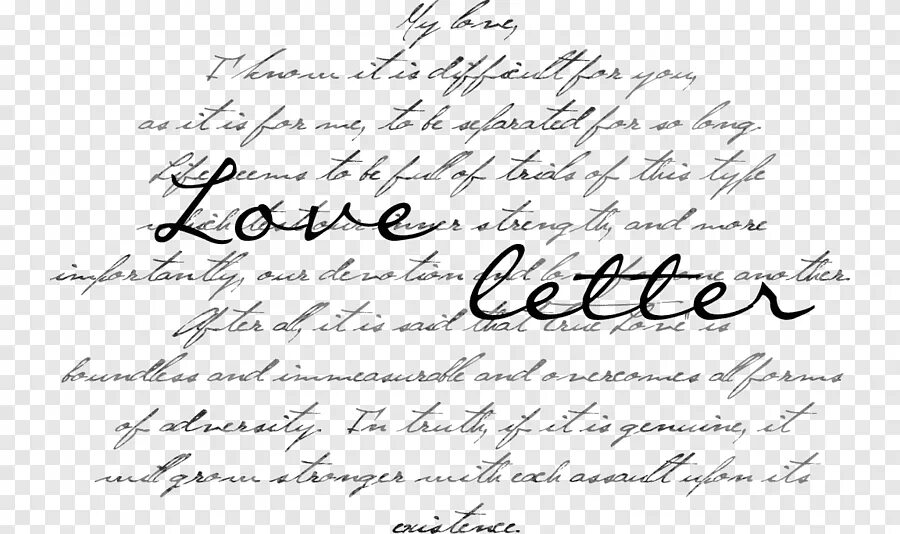 My love,
I know it is difficult for you,
as it is for me, to be separated for so long.
Life seems to be full of trials of this type
which tests our inner strength, and more
importantly, our devotion and love to one another.
After all, it is said that true Love is
boundless and immeasurable and overcomes all forms
of adversity. In truth, if it is genuine, it
will grow stronger with each assault upon its
existence.
Love
letter